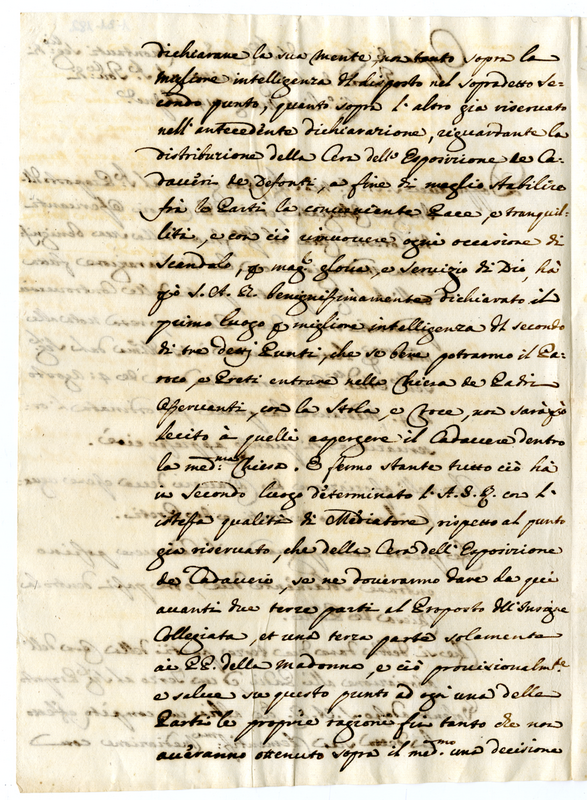 dichiarare la sua mente, non tanto sopra la
migliore intelligenza del disposto nel sopradetto se-
condo punto, quanto sopra l'altro già riservato
nell'antecedente dichiarazione, riguardante la
distribuzione della Cera dell'Esposizione de Ca-
daveri de Defonti, a fine di meglio stabilire
frà le Parti la conveniente Pace, e tranquil-
lità, e con ciò rimuovere ogni occasione di
scandalo, p magg. gloria, e servizio di Dio, hà
p ciò S. A. R. benignissimamente dichiarato il
primo luogo p migliore intelligenza del secondo
di tre detti Punti, che se bene potranno il Pa-
roco, e Preti entrare nella Chiesa de Padri
Osservanti, con la Stola, e Croce, non sarà p ciò
lecito à quelli aspergere il Cadavere dentro
la med. Chiesa. E fermo stante tutto ciò hà
in Secondo luogo determinato l'A. S. R. con l'
istessa qualità di Mediatore, rispetto al punto
già riservato, che della Cera dell'Esposizione
de Cadaveri, se ne doveranno dare da qui
avanti due terze parti al Proposto dell'Insigne
Collegiata, et una terza parte solamente
ai PP. della Madonna, e ciò provisionalmte
e salve su questo punto ad ogi una delle
Parti le proprie ragioni fin tanto che non
averanno ottenuto sopra il medmo una decisione